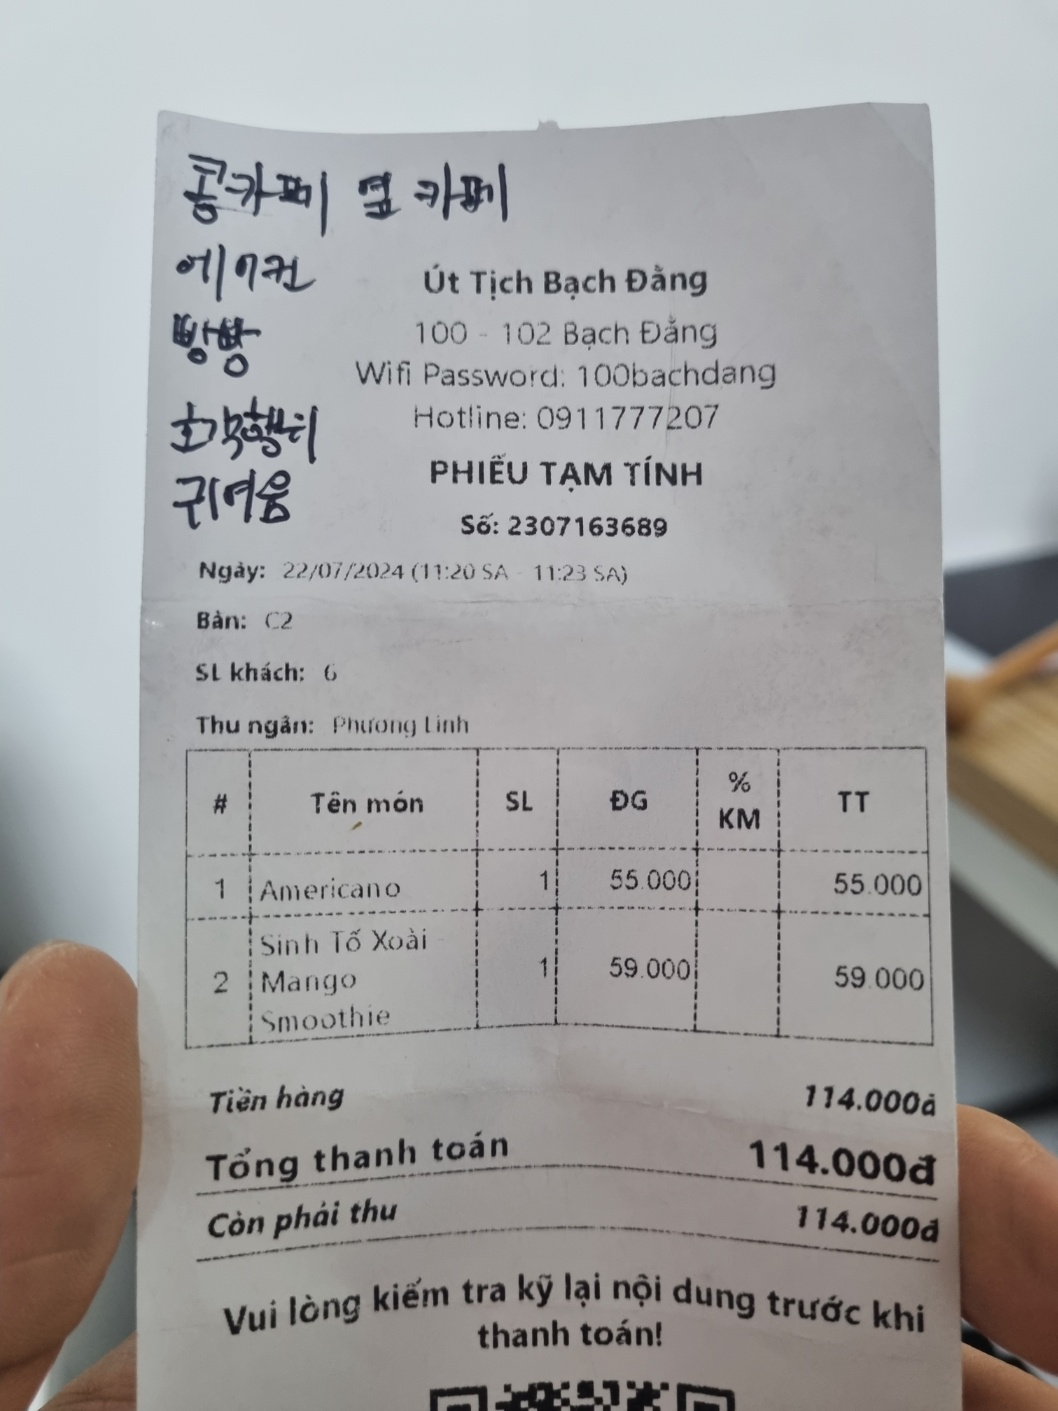 콩카페 옆 카페
에어컨
빵빵
귀여움
Út Tịch Bạch Đằng
100 - 102 Bạch Đằng
Wifi Password: 100bachdang
Hotline: 0911777207
PHIẾU TẠM TÍNH
Số: 2307163689
Ngày: 22/07/2024 (11:20 SA - 11:23 SA)
Bàn: C2
SL khách: 6
Thu ngân: Phương Linh
# Tên món SL ĐG % KM TT
1 Americano 1 55.000 55.000
2 Sinh Tố Xoài 1 59.000 59.000
Mango
Smoothie
Tiền hàng 114.000đ
Tổng thanh toán 114.000đ
Còn phải thu 114.000đ
Vui lòng kiểm tra kỹ lại nội dung trước khi
thanh toán!